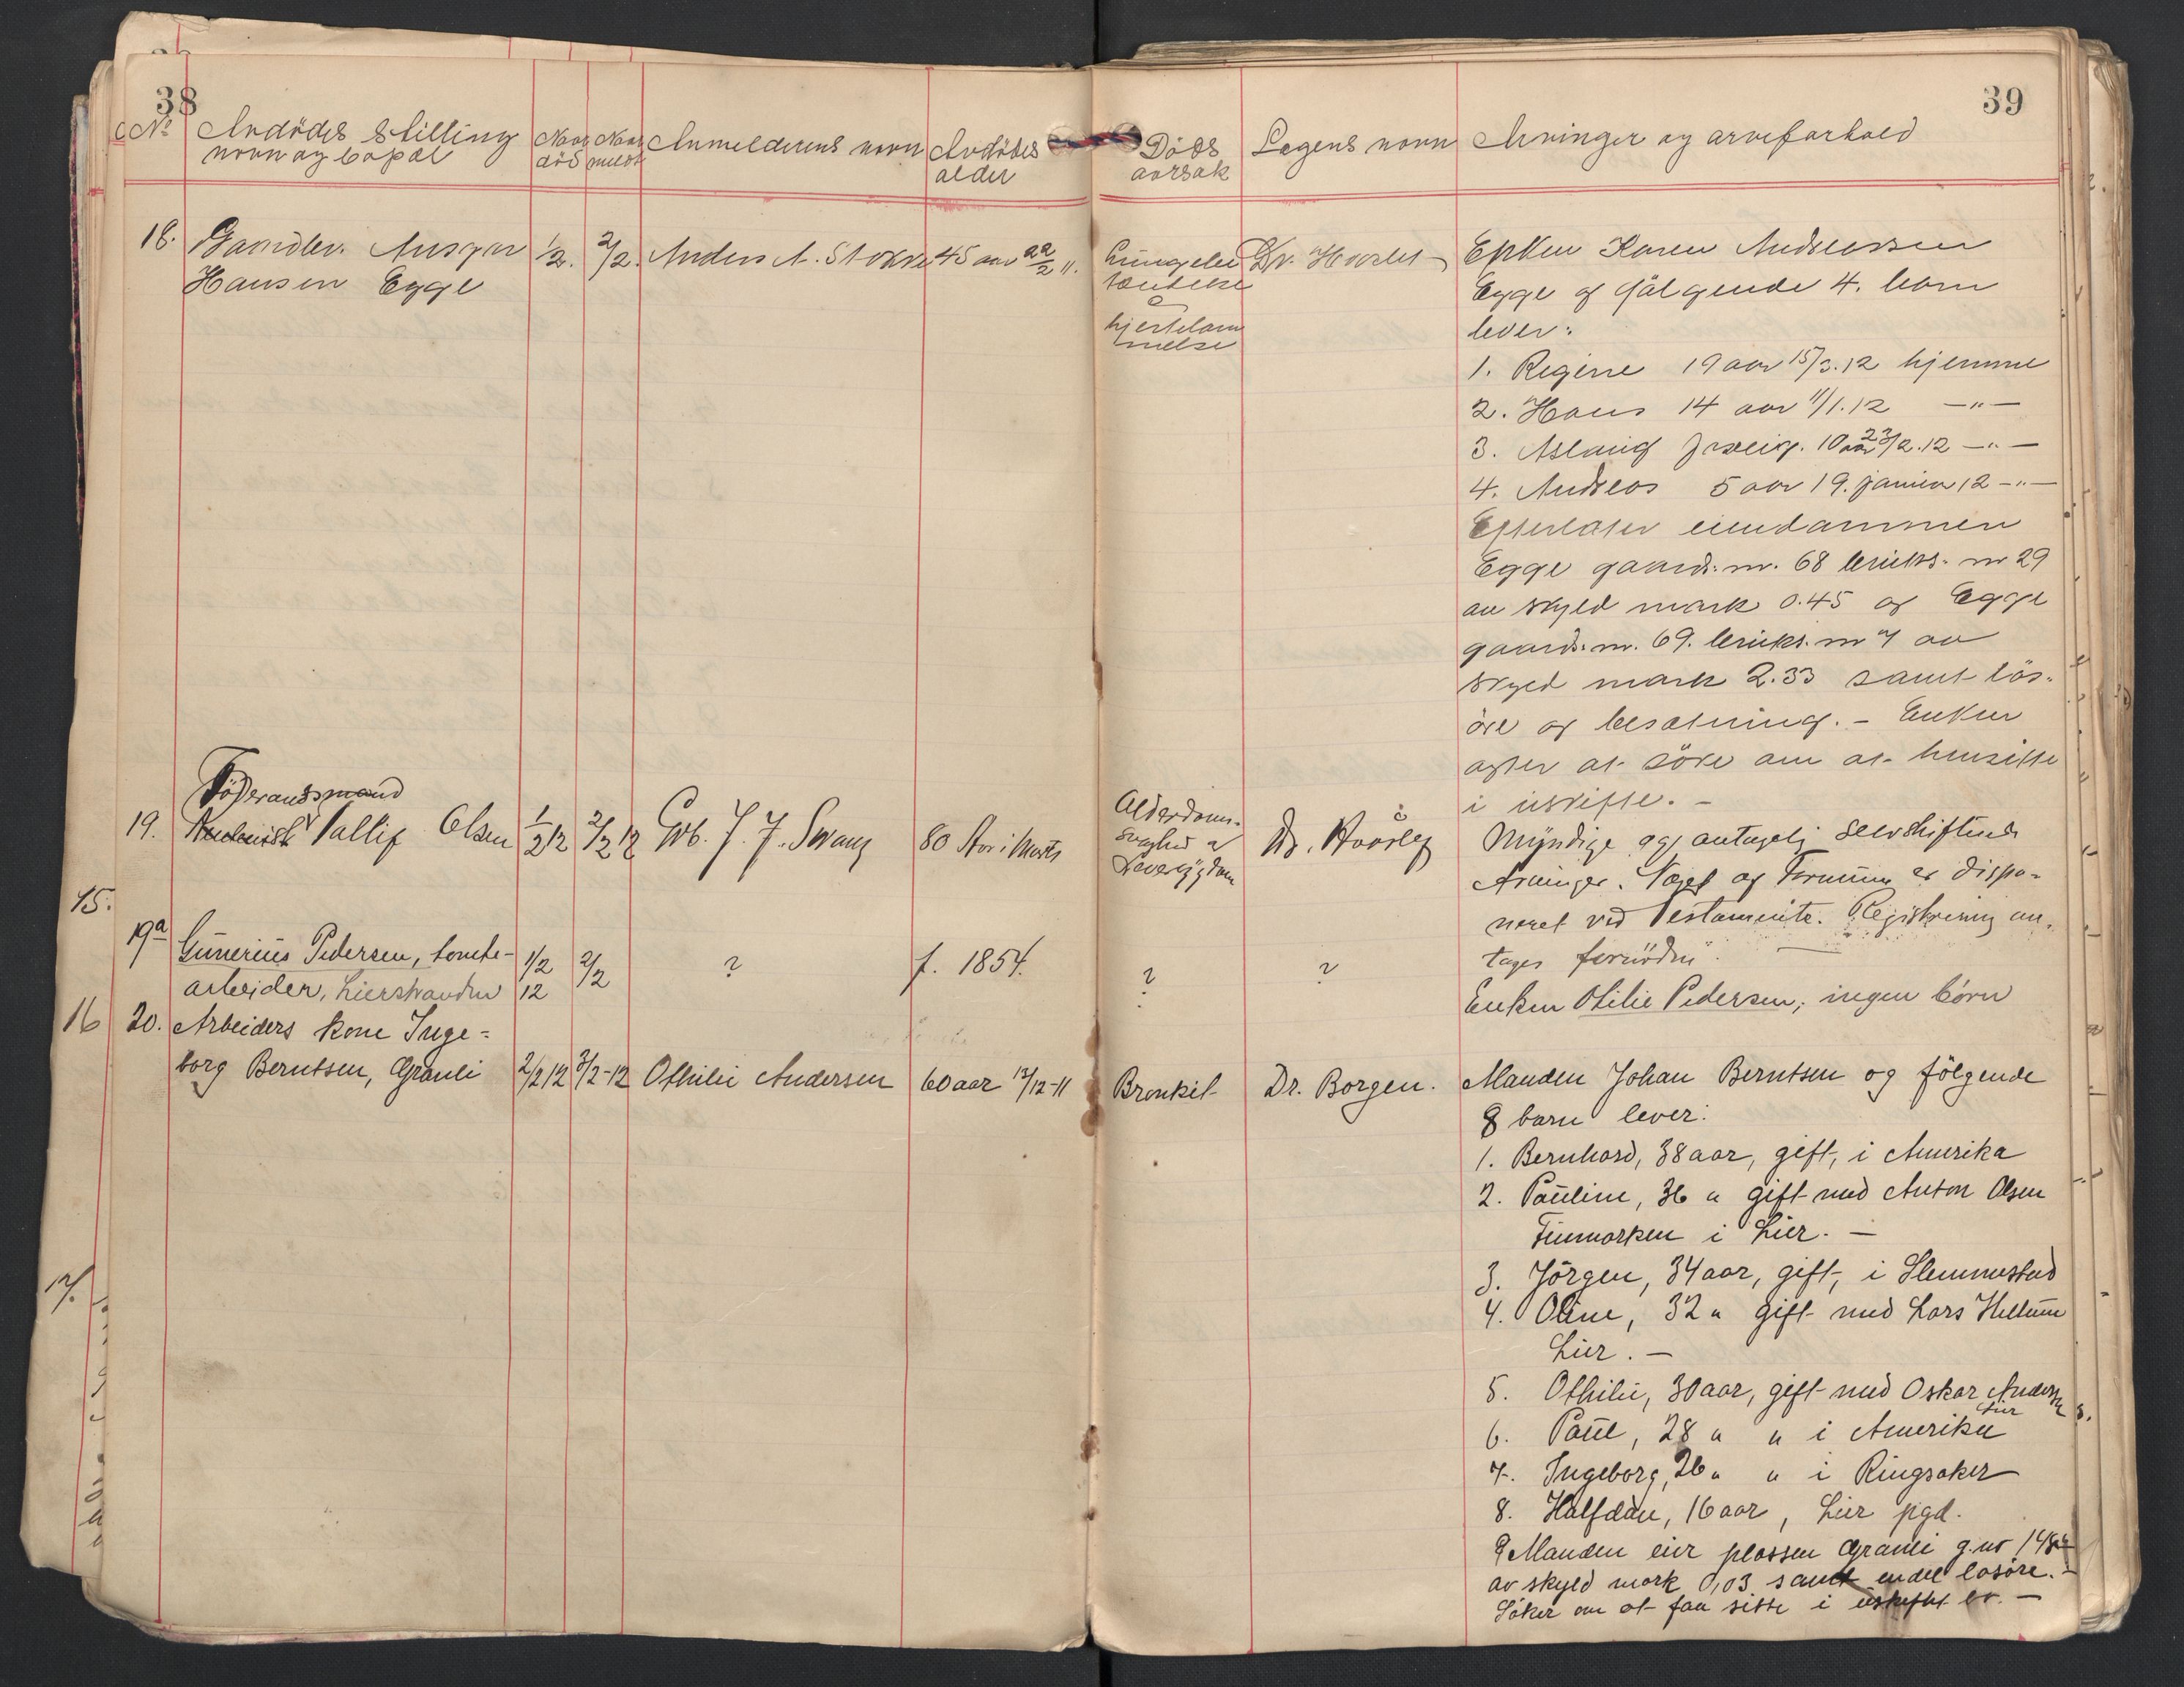 38
39
No Avdödes stilling navn og bopæl
Naar död
Naar meldt
Anmelderens navn
Avdödes alder
Döds aarsak
Lægens navn
Arvinger og arveforhold
18. Gaardbr. Ansgar
Hansen Egge
1/2.
2/2.
Anders A. Stokse
45 aar 22/2 11.
Lungebe
tændelse
&
hjertelam
melse
Dr.
Enken Karen Andreassen
Egge og følgende 4. barn
lever:
1. Regine 19 aar 15/3.12 hjemme
2. Hans 14 aar 11/1.12 -"-
3. Aslaug 10 aar 23/2.12 -"-
4. Andreas 5 aar 19. januar 12 -"-
Efterlater eiendommen
Egge gaards. nr. 68 bruks. nr 29
av skyld mark 0.45 og Egge
gaards. nr. 69. bruks. nr 7 av
skyld mark 2.33 samt lös-
öre og besætning. - Enken
agter at söke om at hensitte
i uskifte. -
Föderaadsmand
19. Olsen
1/2 12
2/2 12
Grb. J. J. Svang
80 Aar i Marts
Alderdoms-
svaghed &
Leversygdom
Dr.
Myndige og antagelig selvskiftende
Arvinger. Noget af Formuen er dispo-
neret ved Testamente. Registrering an-
tages fornöden.
15.
19a Gunerius Pedersen, tomte-
arbeider, Lierstranden
1/2
12
2/2
?
f. 1854.
?
?
Enken Otilie Pedersen; ingen börn
16
20. Arbeiders kone Inge-
borg Berntsen, Granli
2/2 12
3/2-12
Othilie Andersen
60 aar 13/12-11
Bronkit
Dr. Borgen.
Manden Johan Berntsen og fölgende
8 barn lever:
1. Bernhard, 38 aar, gift, i Amerika
2. Pauline, 36 " gift med Anton Olsen
Finmarken i Lier. -
3. Jörgen, 34 aar, gift, i Slemmestad
4. Oline, 32 " gift med Lars Hellum
Lier. -
5. Othilie, 30 aar, gift med Oskar Andersen
Lier
6. Paul, 28 " " i Amerika
7. Ingeborg, 26 " " i Ringsaker
8. Halfdan, 16 aar, Lier pgd.
Manden eier plassen Granli g.no
av skyld mark 0,03 samt endel lösöre. -
Söker om at faa sitte i uskiftet bo. -
17.